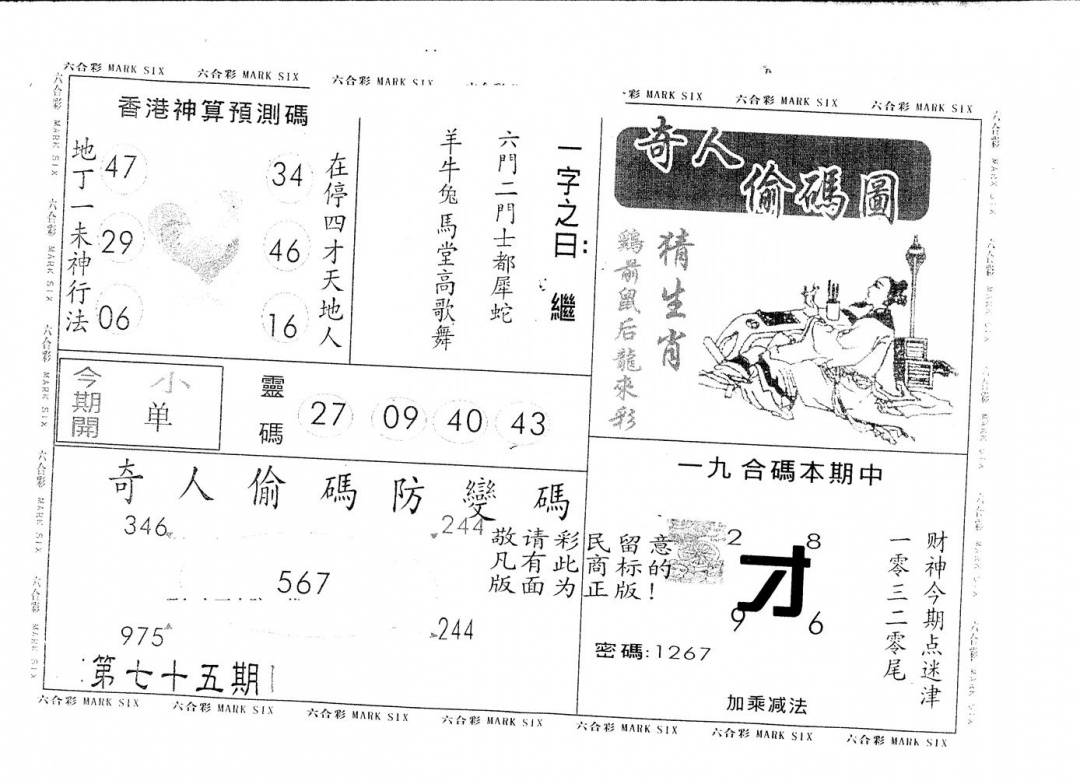 六合彩 MARK SIX 六合彩 MARK SIX 六合彩 MARK SIX 六合彩 彩 MARK SIX 六合彩 MARK SIX 六合彩 MARK SIX
香港神算預測碼
地丁一未神行法
47
29
06
34
46
16
在停四才天地人
一字之曰: 繼
六門二門士都犀蛇
羊牛兔馬堂高歌舞
奇人偷碼圖
猜生肖
鷄前鼠后龍來彩
今期開
小
单
靈碼
27 09 40 43
奇人偷碼防變碼
346 244
567
975 244
敬请彩民留意
凡有此商标的
版面为正版!
第七十五期
一九合碼本期中
2 8
才
9 6
密碼:1267
加乘减法
财神今期点迷津
一零三二零尾
六合彩 MARK SIX 六合彩 MARK SIX 六合彩 MARK SIX 六合彩 MARK SIX 六合彩 MARK SIX 六合彩 MARK SIX 六合彩 MARK SIX